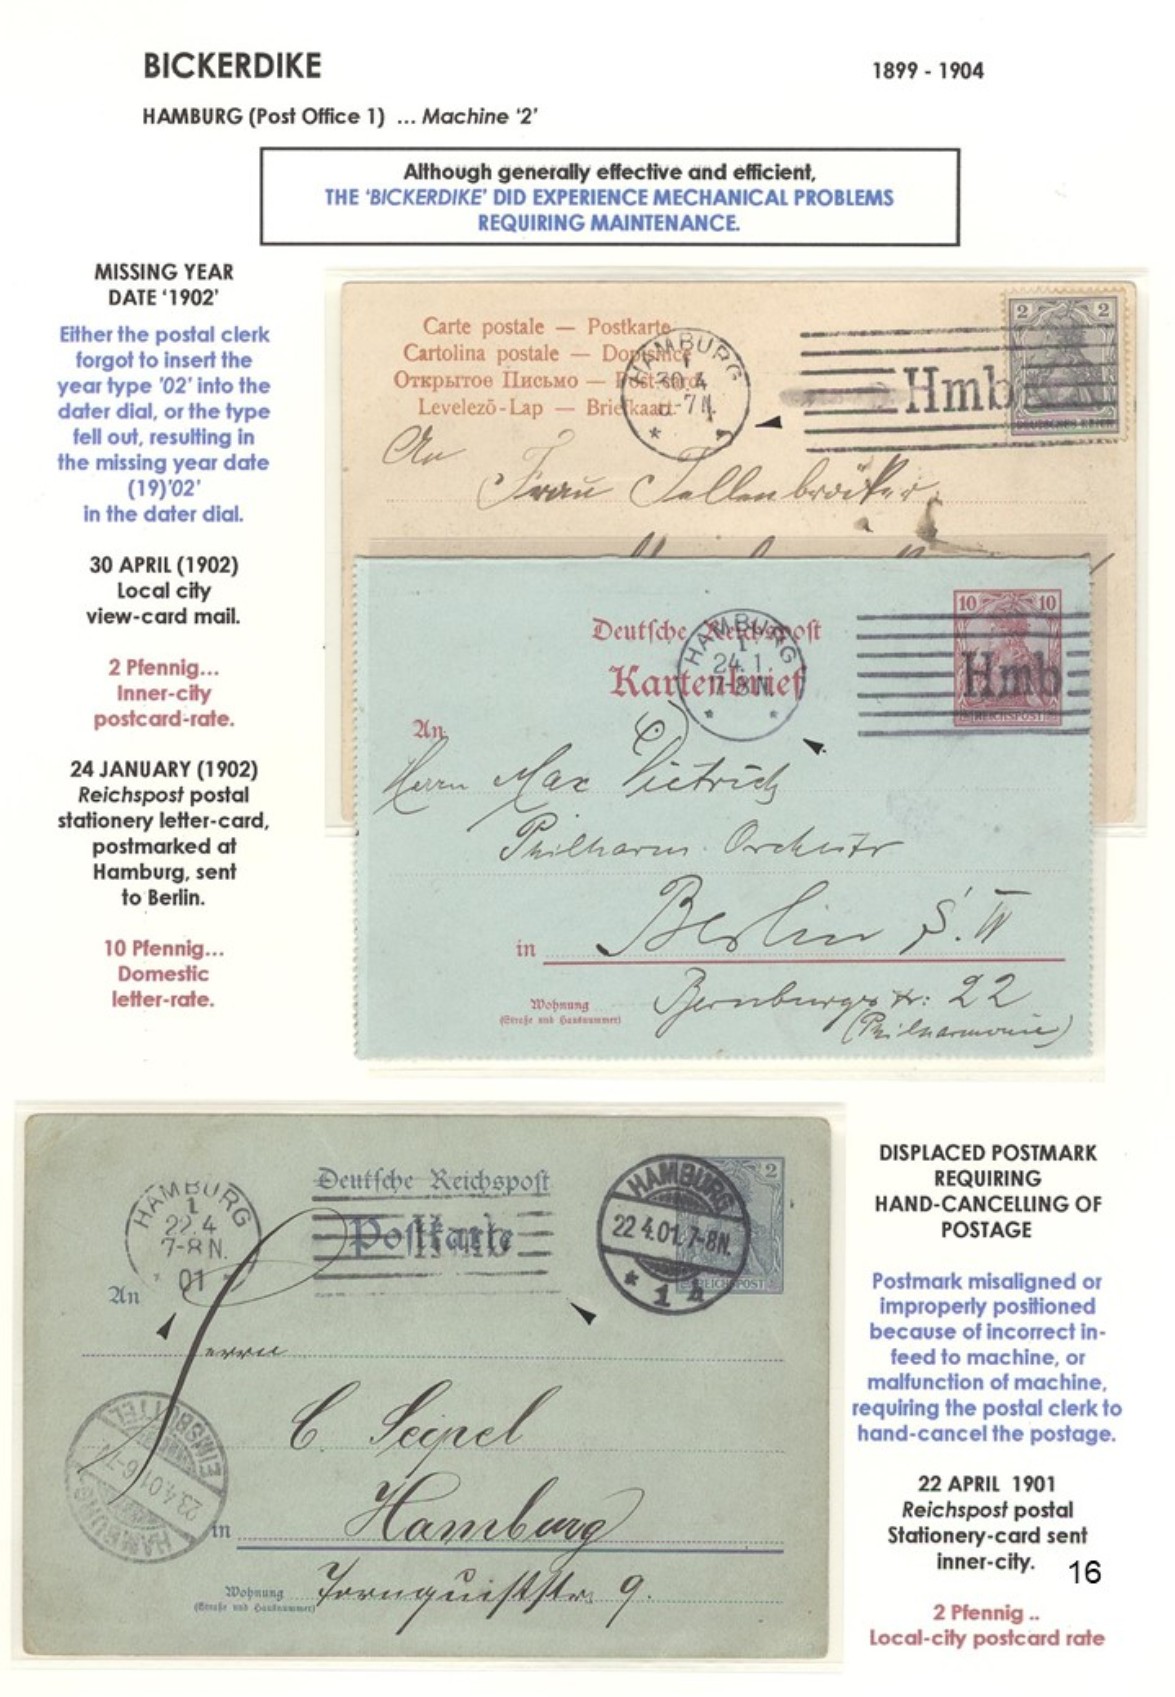 BICKERDIKE
1899 - 1904
HAMBURG (Post Office 1) ... Machine '2'
Although generally effective and efficient,
THE 'BICKERDIKE' DID EXPERIENCE MECHANICAL PROBLEMS
REQUIRING MAINTENANCE.
MISSING YEAR
DATE '1902'
Either the postal clerk
forgot to insert the
year type '02' into the
dater dial, or the type
fell out, resulting in
the missing year date
(19)'02'
in the dater dial.
30 APRIL (1902)
Local city
view-card mail.
2 Pfennig...
Inner-city
postcard-rate.
24 JANUARY (1902)
Reichspost postal
stationery letter-card,
postmarked at
Hamburg, sent
to Berlin.
10 Pfennig...
Domestic
letter-rate.
Carte postale — Postkarte
Cartolina postale — Dopisnice
Открытое Письмо — Post-card
Levelezö-Lap — Briefkaart
HAMBURG
1
30.4
Hmb
2 2
DEUTSCHES REICH
An
Frau
Deutsche Reichspost
Kartenbrief
HAMBURG
1
24.1.
7-8N.
Hmb
10 10
REICHSPOST
An
Herrn Max Dietrich
Philharm. Orchestr
in Berlin S.W
Wohnung
(Straße und Hausnummer)
Bernburgerstr: 22
(Philharmonie)
HAMBURG
1
22.4
7-8N.
01
Deutsche Reichspost
Postkarte
HAMBURG
22.4.01.7-8N.
* 1 h
2
REICHSPOST
An
Herrn
C. Seipel
in Hamburg
Wohnung
(Straße und Hausnummer)
Tornquiststr. 9.
HAMBURG
23.4.01.6-7V
EIMSBÜTTEL
DISPLACED POSTMARK
REQUIRING
HAND-CANCELLING OF
POSTAGE
Postmark misaligned or
improperly positioned
because of incorrect in-
feed to machine, or
malfunction of machine,
requiring the postal clerk to
hand-cancel the postage.
22 APRIL 1901
Reichspost postal
Stationery-card sent
inner-city.
16
2 Pfennig ..
Local-city postcard rate